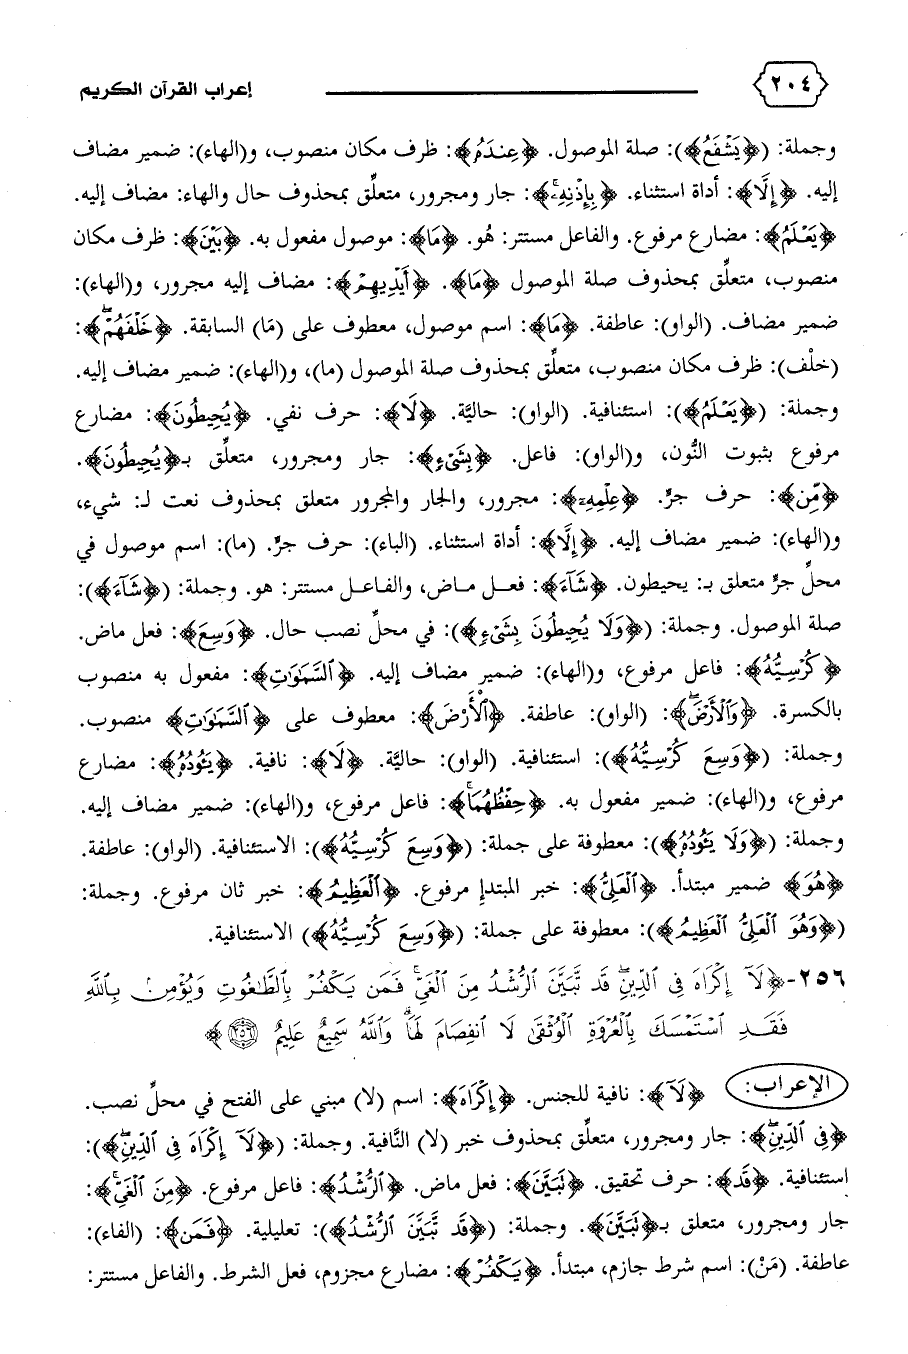 ٢٠٤ إعراب القرآن الكريم
وجملة: (﴿يَشْفَعُ﴾): صلة الموصول. ﴿عِندَهُ﴾: ظرف مكان منصوب، و(الهاء): ضمير مضاف
إليه. ﴿إِلَّا﴾: أداة استثناء. ﴿بِإِذْنِهِۦ﴾: جار ومجرور، متعلِّق بمحذوف حال والهاء: مضاف إليه.
﴿يَعْلَمُ﴾: مضارع مرفوع. والفاعل مستتر: هُو. ﴿مَا﴾: موصول مفعول به. ﴿بَيْنَ﴾: ظرف مكان
منصوب، متعلِّق بمحذوف صلة الموصول ﴿مَا﴾. ﴿أَيْدِيهِمْ﴾: مضاف إليه مجرور، و(الهاء):
ضمير مضاف. (الواو): عاطفة. ﴿مَا﴾: اسم موصول، معطوف على (مَا) السابقة. ﴿خَلْفَهُمْ﴾:
(خلْف): ظرف مكان منصوب، متعلِّق بمحذوف صلة الموصول (ما)، و(الهاء): ضمير مضاف إليه.
وجملة: (﴿يَعْلَمُ﴾): استئنافية. (الواو): حاليَّة. ﴿لَا﴾: حرف نفي. ﴿يُحِيطُونَ﴾: مضارع
مرفوع بثبوت النُّون، و(الواو): فاعل. ﴿بِشَىْءٍ﴾: جار ومجرور، متعلِّق بـ﴿يُحِيطُونَ﴾.
﴿مِّنْ﴾: حرف جرٍّ. ﴿عِلْمِهِۦ﴾: مجرور، والجار والمجرور متعلق بمحذوف نعت لـ: شيء،
و(الهاء): ضمير مضاف إليه. ﴿إِلَّا﴾: أداة استثناء. (الباء): حرف جرٍّ. (ما): اسم موصول في
محلِّ جرٍّ متعلق بـ: يحيطون. ﴿شَآءَ﴾: فعـل مـاض، والفـاعـل مستتر: هو. وجملة: (﴿شَآءَ﴾):
صلة الموصول. وجملة: (﴿وَلَا يُحِيطُونَ بِشَىْءٍ﴾): في محلِّ نصب حال. ﴿وَسِعَ﴾: فعل ماض.
﴿كُرْسِيُّهُ﴾: فاعل مرفوع، و(الهاء): ضمير مضاف إليه. ﴿السَّمَٰوَٰتِ﴾: مفعول به منصوب
بالكسرة. ﴿وَٱلْأَرْضَ﴾: (الواو): عاطفة. ﴿الْأَرْضَ﴾: معطوف على ﴿السَّمَٰوَٰتِ﴾ منصوب.
وجملة: (﴿وَسِعَ كُرْسِيُّهُ﴾): استئنافية. (الواو): حاليَّة. ﴿لَا﴾: نافية. ﴿يَـُٔودُهُ﴾: مضارع
مرفوع، و(الهاء): ضمير مفعول به. ﴿حِفْظُهُمَا﴾: فاعل مرفوع، و(الهاء): ضمير مضاف إليه.
وجملة: (﴿وَلَا يَـُٔودُهُ﴾): معطوفة على جملة: (﴿وَسِعَ كُرْسِيُّهُ﴾): الاستئنافية. (الواو): عاطفة.
﴿هُوَ﴾ ضمير مبتدأ. ﴿الْعَلِيُّ﴾: خبر المبتدإ مرفوع. ﴿الْعَظِيمُ﴾: خبر ثان مرفوع. وجملة:
(﴿وَهُوَ الْعَلِيُّ الْعَظِيمُ﴾): معطوفة على جملة: (﴿وَسِعَ كُرْسِيُّهُ﴾) الاستئنافية.
٢٥٦- ﴿لَآ إِكْرَاهَ فِى ٱلدِّينِۖ قَد تَّبَيَّنَ ٱلرُّشْدُ مِنَ ٱلْغَىِّۚ فَمَن يَكْفُرْ بِٱلطَّٰغُوتِ وَيُؤْمِنۢ بِٱللَّهِ
فَقَدِ ٱسْتَمْسَكَ بِٱلْعُرْوَةِ ٱلْوُثْقَىٰ لَا ٱنفِصَامَ لَهَاۗ وَٱللَّهُ سَمِيعٌ عَلِيمٌ ٢٥٦﴾
الإعراب: ﴿لَآ﴾: نافية للجنس. ﴿إِكْرَاهَ﴾: اسم (لا) مبني على الفتح في محلِّ نصب.
﴿فِى ٱلدِّينِۖ﴾: جار ومجرور، متعلِّق بمحذوف خبر (لا) النَّافية. وجملة: (﴿لَآ إِكْرَاهَ فِى ٱلدِّينِۖ﴾):
استئنافية. ﴿قَد﴾: حرف تحقيق. ﴿تَبَيَّنَ﴾: فعل ماض. ﴿ٱلرُّشْدُ﴾: فاعل مرفوع. ﴿مِنَ ٱلْغَىِّۚ﴾:
جار ومجرور، متعلق بـ﴿تَبَيَّنَ﴾. وجملة: (﴿قَد تَّبَيَّنَ ٱلرُّشْدُ﴾): تعليلية. ﴿فَمَن﴾: (الفاء):
عاطفة. (مَنْ): اسم شرط جازم، مبتدأ. ﴿يَكْفُرْ﴾: مضارع مجزوم، فعل الشرط. والفاعل مستتر: